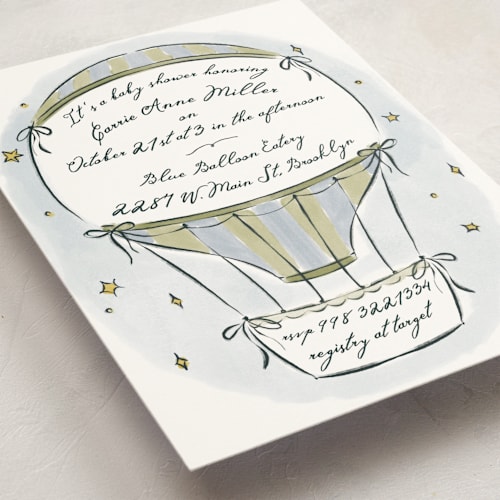 It's a baby shower honoring
Carrie Anne Miller
on
October 21st at 3 in the afternoon
Blue Balloon Eatery
2287 W. Main St, Brooklyn
rsvp 998 3221334
registry at target